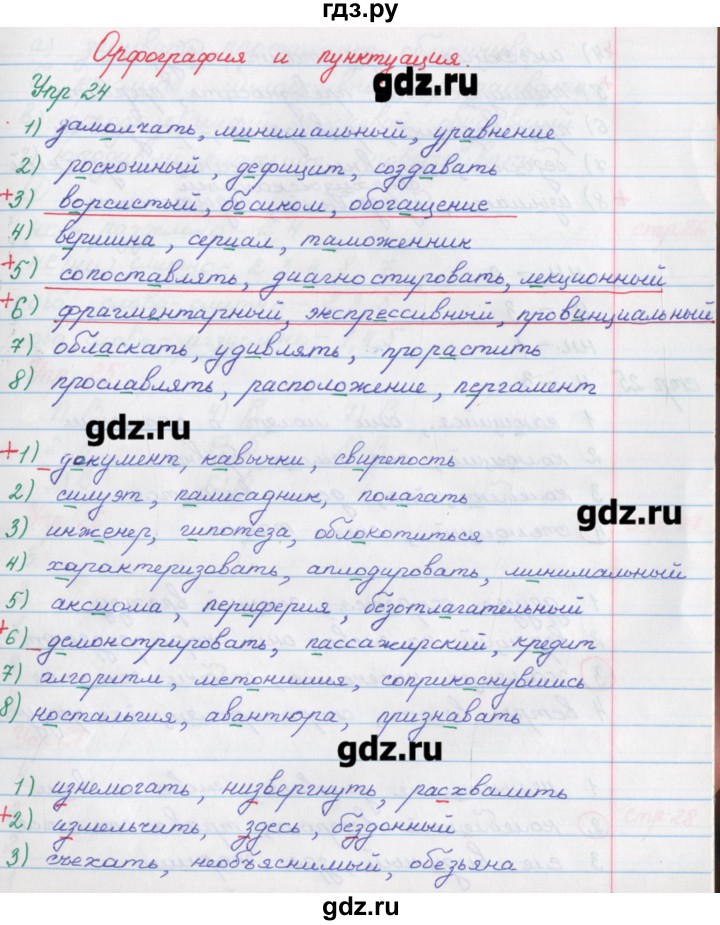 гдз.ру
Орфография и пунктуация.
gdz.ru
Упр 24
1) замолчать, минимальный, уравнение
2) роскошный, дефицит, создавать
+3) ворсистый, босиком, обогащение
4) вершина, сериал, таможенник
+5) сопоставлять, диагностировать, лекционный
+6) фрагментарный, экспрессивный, провинциальный
7) обласкать, удивлять, прорастить
8) прославлять, расположение, пергамент
gdz.ru
+1) документ, кавычки, свирепость
2) силуэт, палисадник, полагать
gdz.ru
3) инженер, гипотеза, облокотиться
4) характеризовать, аплодировать, минимальный
5) аксиома, периферия, безотлагательный
+6) демонстрировать, пассажирский, кредит
7) алгоритм, метонимия, соприкоснувшись
8) ностальгия, авантюра, признавать
gdz.ru
1) изнемогать, низвергнуть, расхвалить
+2) измельчить, здесь, бездонный
3) съехать, необъяснимый, обезьяна
gdz.ru